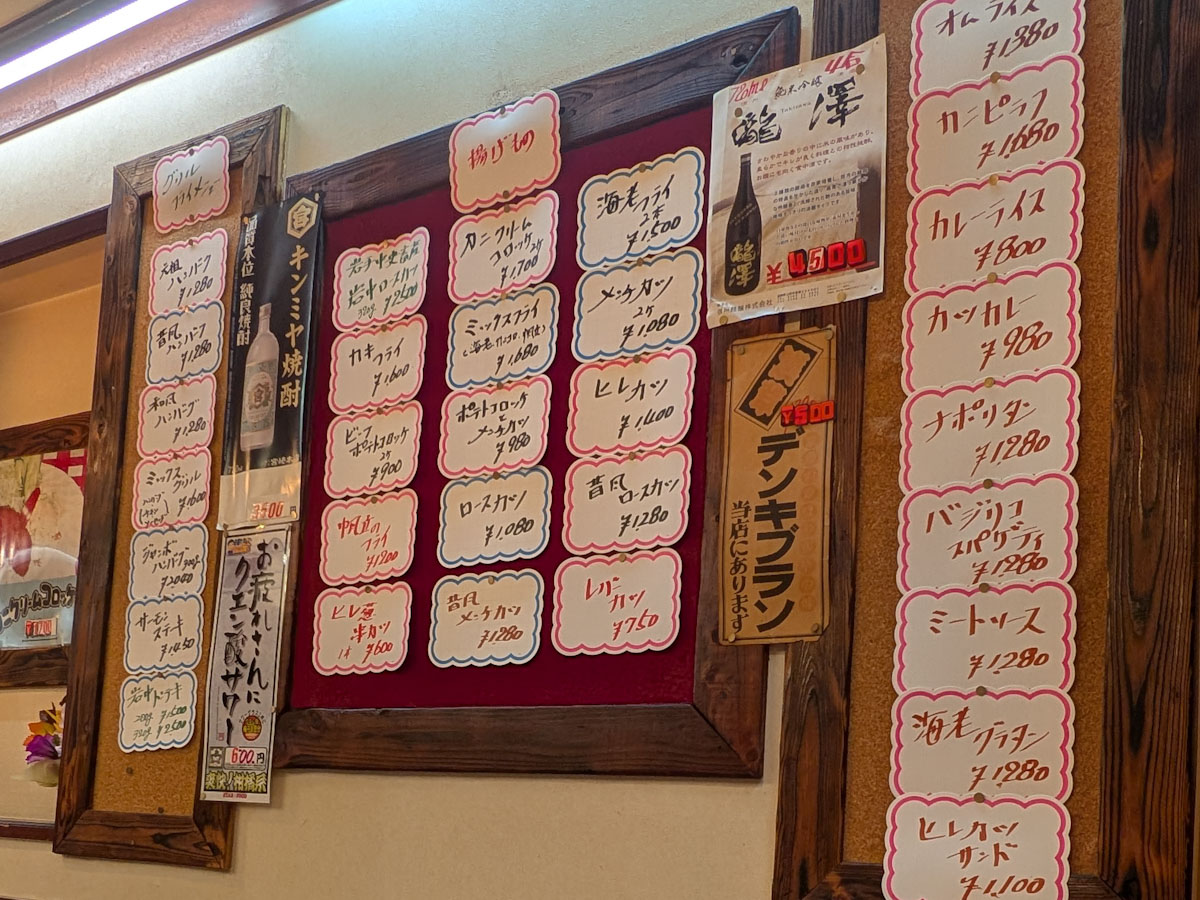 グリル
元祖
ハンバーグ
¥1,280
昔風
ハンバーグ
¥1,280
和風
ハンバーグ
¥1,280
ミックス
グリル
¥1600
ジャンボ
ハンバーグ
¥2040
サーモン
ステキ
¥1450
岩中トンテキ
200g ¥1500
320g ¥2500
キンミヤ焼酎
純良焼酎
¥500
お疲れさんに
クエン酸サワー
600円
揚げもの
岩中ロースカツ
320g ¥2500
カキフライ
¥1,600
ビーフ
ポテトコロッケ
2ケ
¥900
帆立の
フライ
¥1200
ヒレ葱
串カツ
1本 ¥600
カニクリーム
コロッケ2ケ
¥1,700
ミックスフライ
¥1,680
ポテトコロッケ
と
メンチカツ
¥980
ロースカツ
¥1,080
昔風
メンチカツ
¥1280
海老フライ
2本
¥1,500
メンチカツ
2ケ
¥1,080
ヒレカツ
¥1,400
昔風
ロースカツ
¥1280
レバー
カツ
¥750
720ml
純米吟醸
瀧澤
Takizawa
瀧澤
¥4500
¥500
デンキブラン
当店にあります
オムライス
¥1380
カニピラフ
¥1,680
カレーライス
¥800
カツカレー
¥980
ナポリタン
¥1280
バジリコ
スパゲティ
¥1280
ミートソース
¥1,280
海老グラタン
¥1280
ヒレカツ
サンド
¥1,100
クリームコロッケ